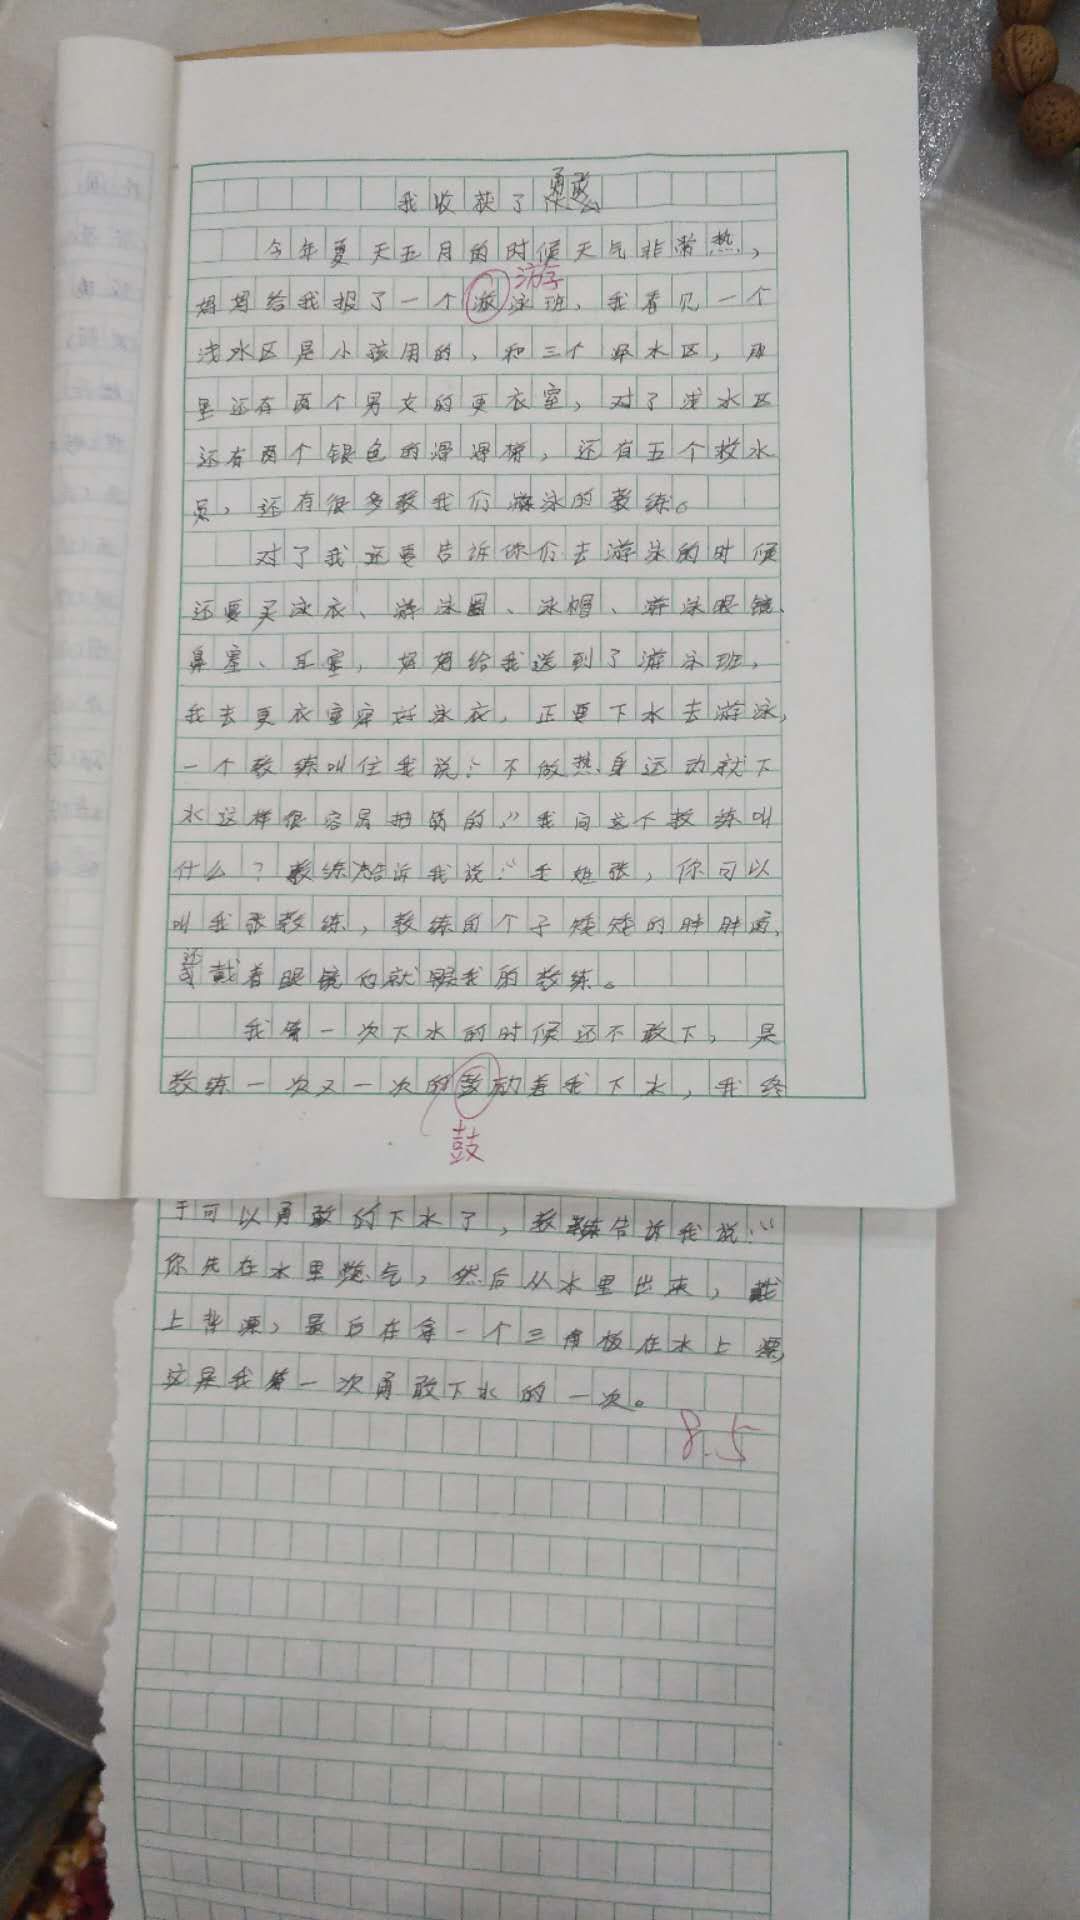 我收获了勇敢
今年夏天五月的时候天气非常热，
游
妈妈给我报了一个游泳班，我看见一个
浅水区是小孩用的，和三个深水区，那
里还有两个男女的更衣室，对了浅水区
还有两个银色的滑滑梯，还有五个救水
员，还有很多教我们游泳的教练。
对了我还要告诉你们去游泳的时候
还要买泳衣、游泳圈、泳帽、游泳眼镜、
鼻塞、耳塞，妈妈给我送到了游泳班，
我去更衣室穿好泳衣，正要下水去游泳，
一个教练叫住我说：“不做热身运动就下
水这样很容易抽筋的，”我问这个教练叫
什么？教练告诉我说：“我姓张，你可以
叫我张教练，教练的个子矮矮的胖胖的，
还戴着眼镜他就是我的教练。
我第一次下水的时候还不敢下，是
教练一次又一次的鼓励着我下水，我终
鼓
于可以勇敢的下水了，教练告诉我说：“
你先在水里憋气，然后从水里出来，戴
上背漂，最后在拿一个三角板在水上漂，
这是我第一次勇敢下水的一次。
8.5